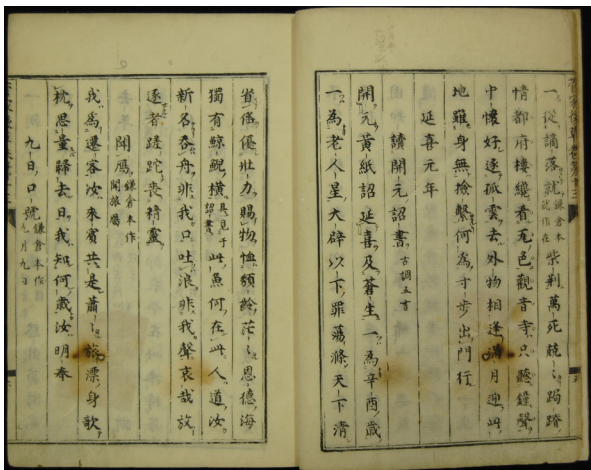 一從謫落就鎌倉本就作在柴荆萬死兢〻跼蹐
情都府樓纔看瓦色觀音寺只聽鐘聲
中懷好逐孤雲去外物相逢滿月迎此
地雖身無撿繫何爲寸步出門行
延喜元年
讀開元詔書古調五言
開元黄紙詔延喜及蒼生一爲辛酉歳
一爲老人星大辟以下罪蕩滌天下清
省徭優壯力賜物恤頽齡茫〻恩德海
獨有鯨鯢橫具見于詔書此魚何在此人道汝
新名吞舟非我口吐浪非我聲哀哉放
逐者蹉跎喪精靈
聞鴈鎌倉本作聞旅鴈
我爲遷客汝來賓共是蕭〻旅漂身欹
枕思量歸去日我知何歳汝明春
九日口號鎌倉本作九月九日